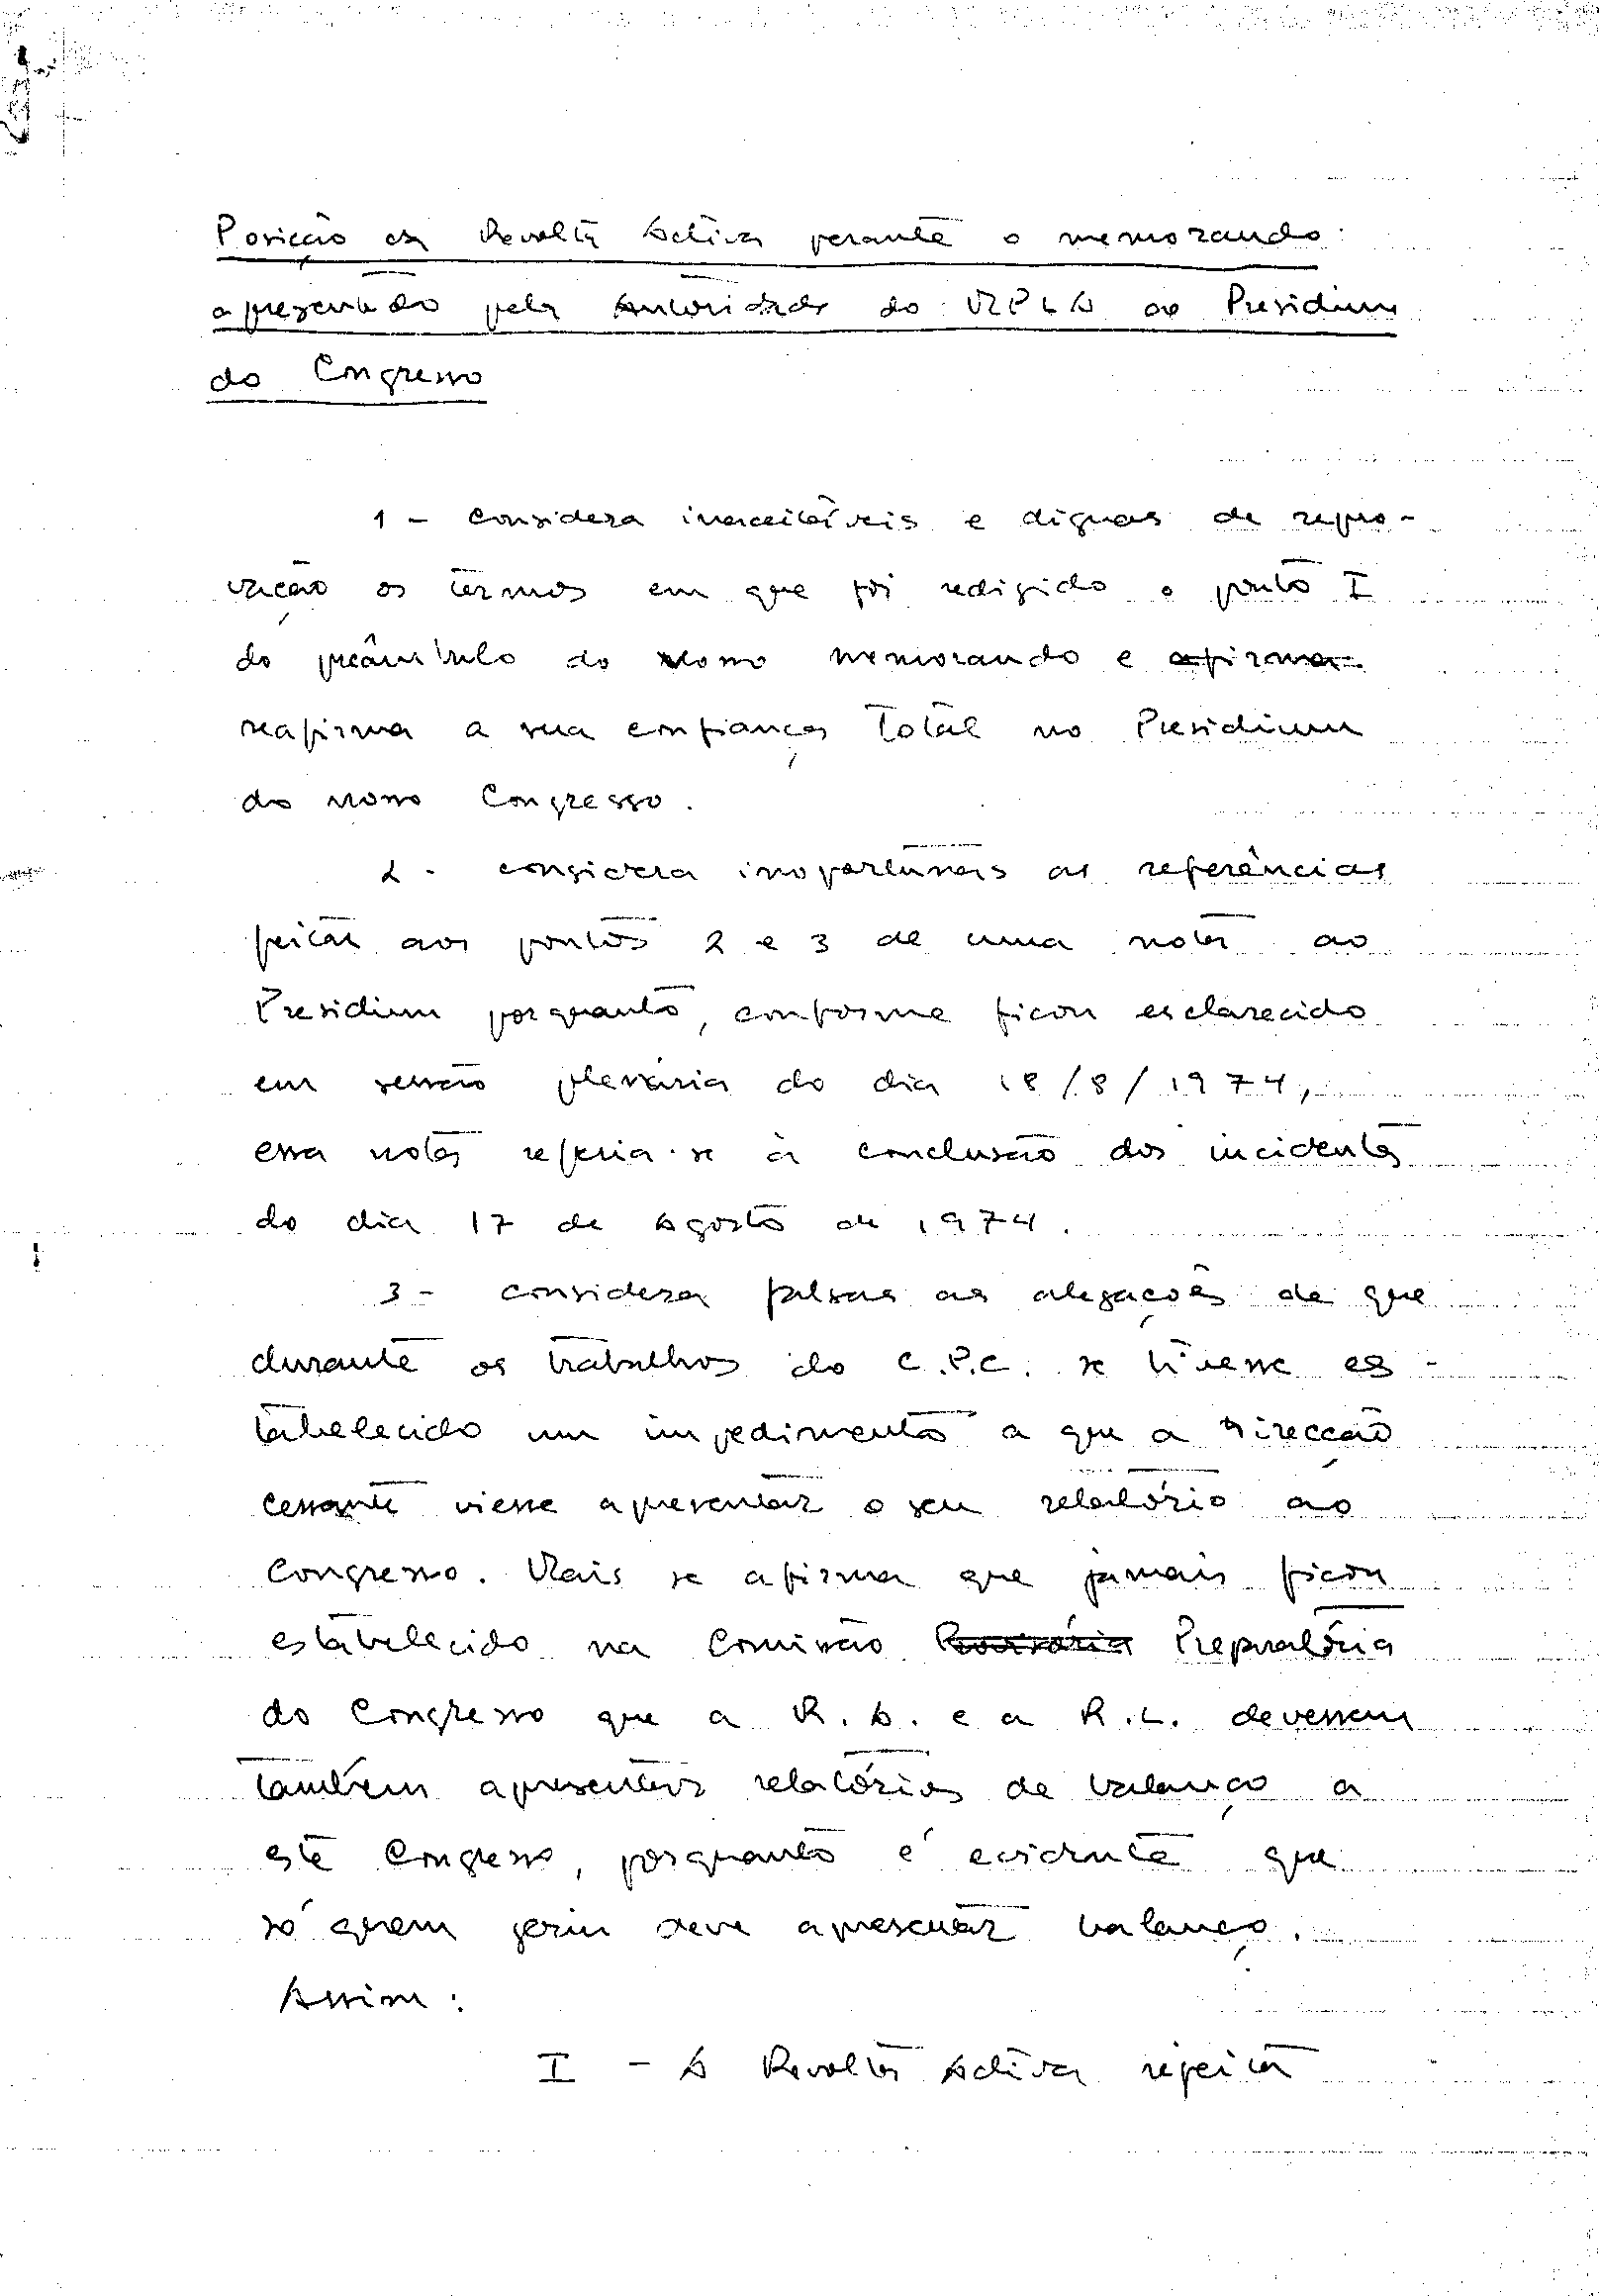 Posição da Revolta Activa perante o memorando
apresentado pela Autoridade do MPLA ao Presidium
do Congresso
1 - Considera inaceitáveis e dignos de repro-
vação os termos em que foi redigido o ponto I
do preâmbulo do vosso memorando e afirma
reafirma a sua confiança total no Presidium
do nosso Congresso.
2 - considera inoportunas as referências
feitas aos pontos 2 e 3 de uma nota ao
Presidium porquanto, conforme ficou esclarecido
em sessão plenária do dia 18/8/1974,
essa nota referia-se à conclusão dos incidentes
do dia 17 de Agosto de 1974.
3 - considera falsas as alegações de que
durante os trabalhos do C.P.C. se tivesse es-
tabelecido um impedimento a que a Direcção
cessante viesse apresentar o seu relatório ao
Congresso. Mais se afirma que jamais ficou
estabelecido na Comissão Preparatória
do Congresso que a R.A. e a R.L. devessem
também apresentar relatórios de balanço a
este Congresso, porquanto é evidente que
só quem geriu deve apresentar balanço.
Assim:
I - A Revolta Activa rejeita